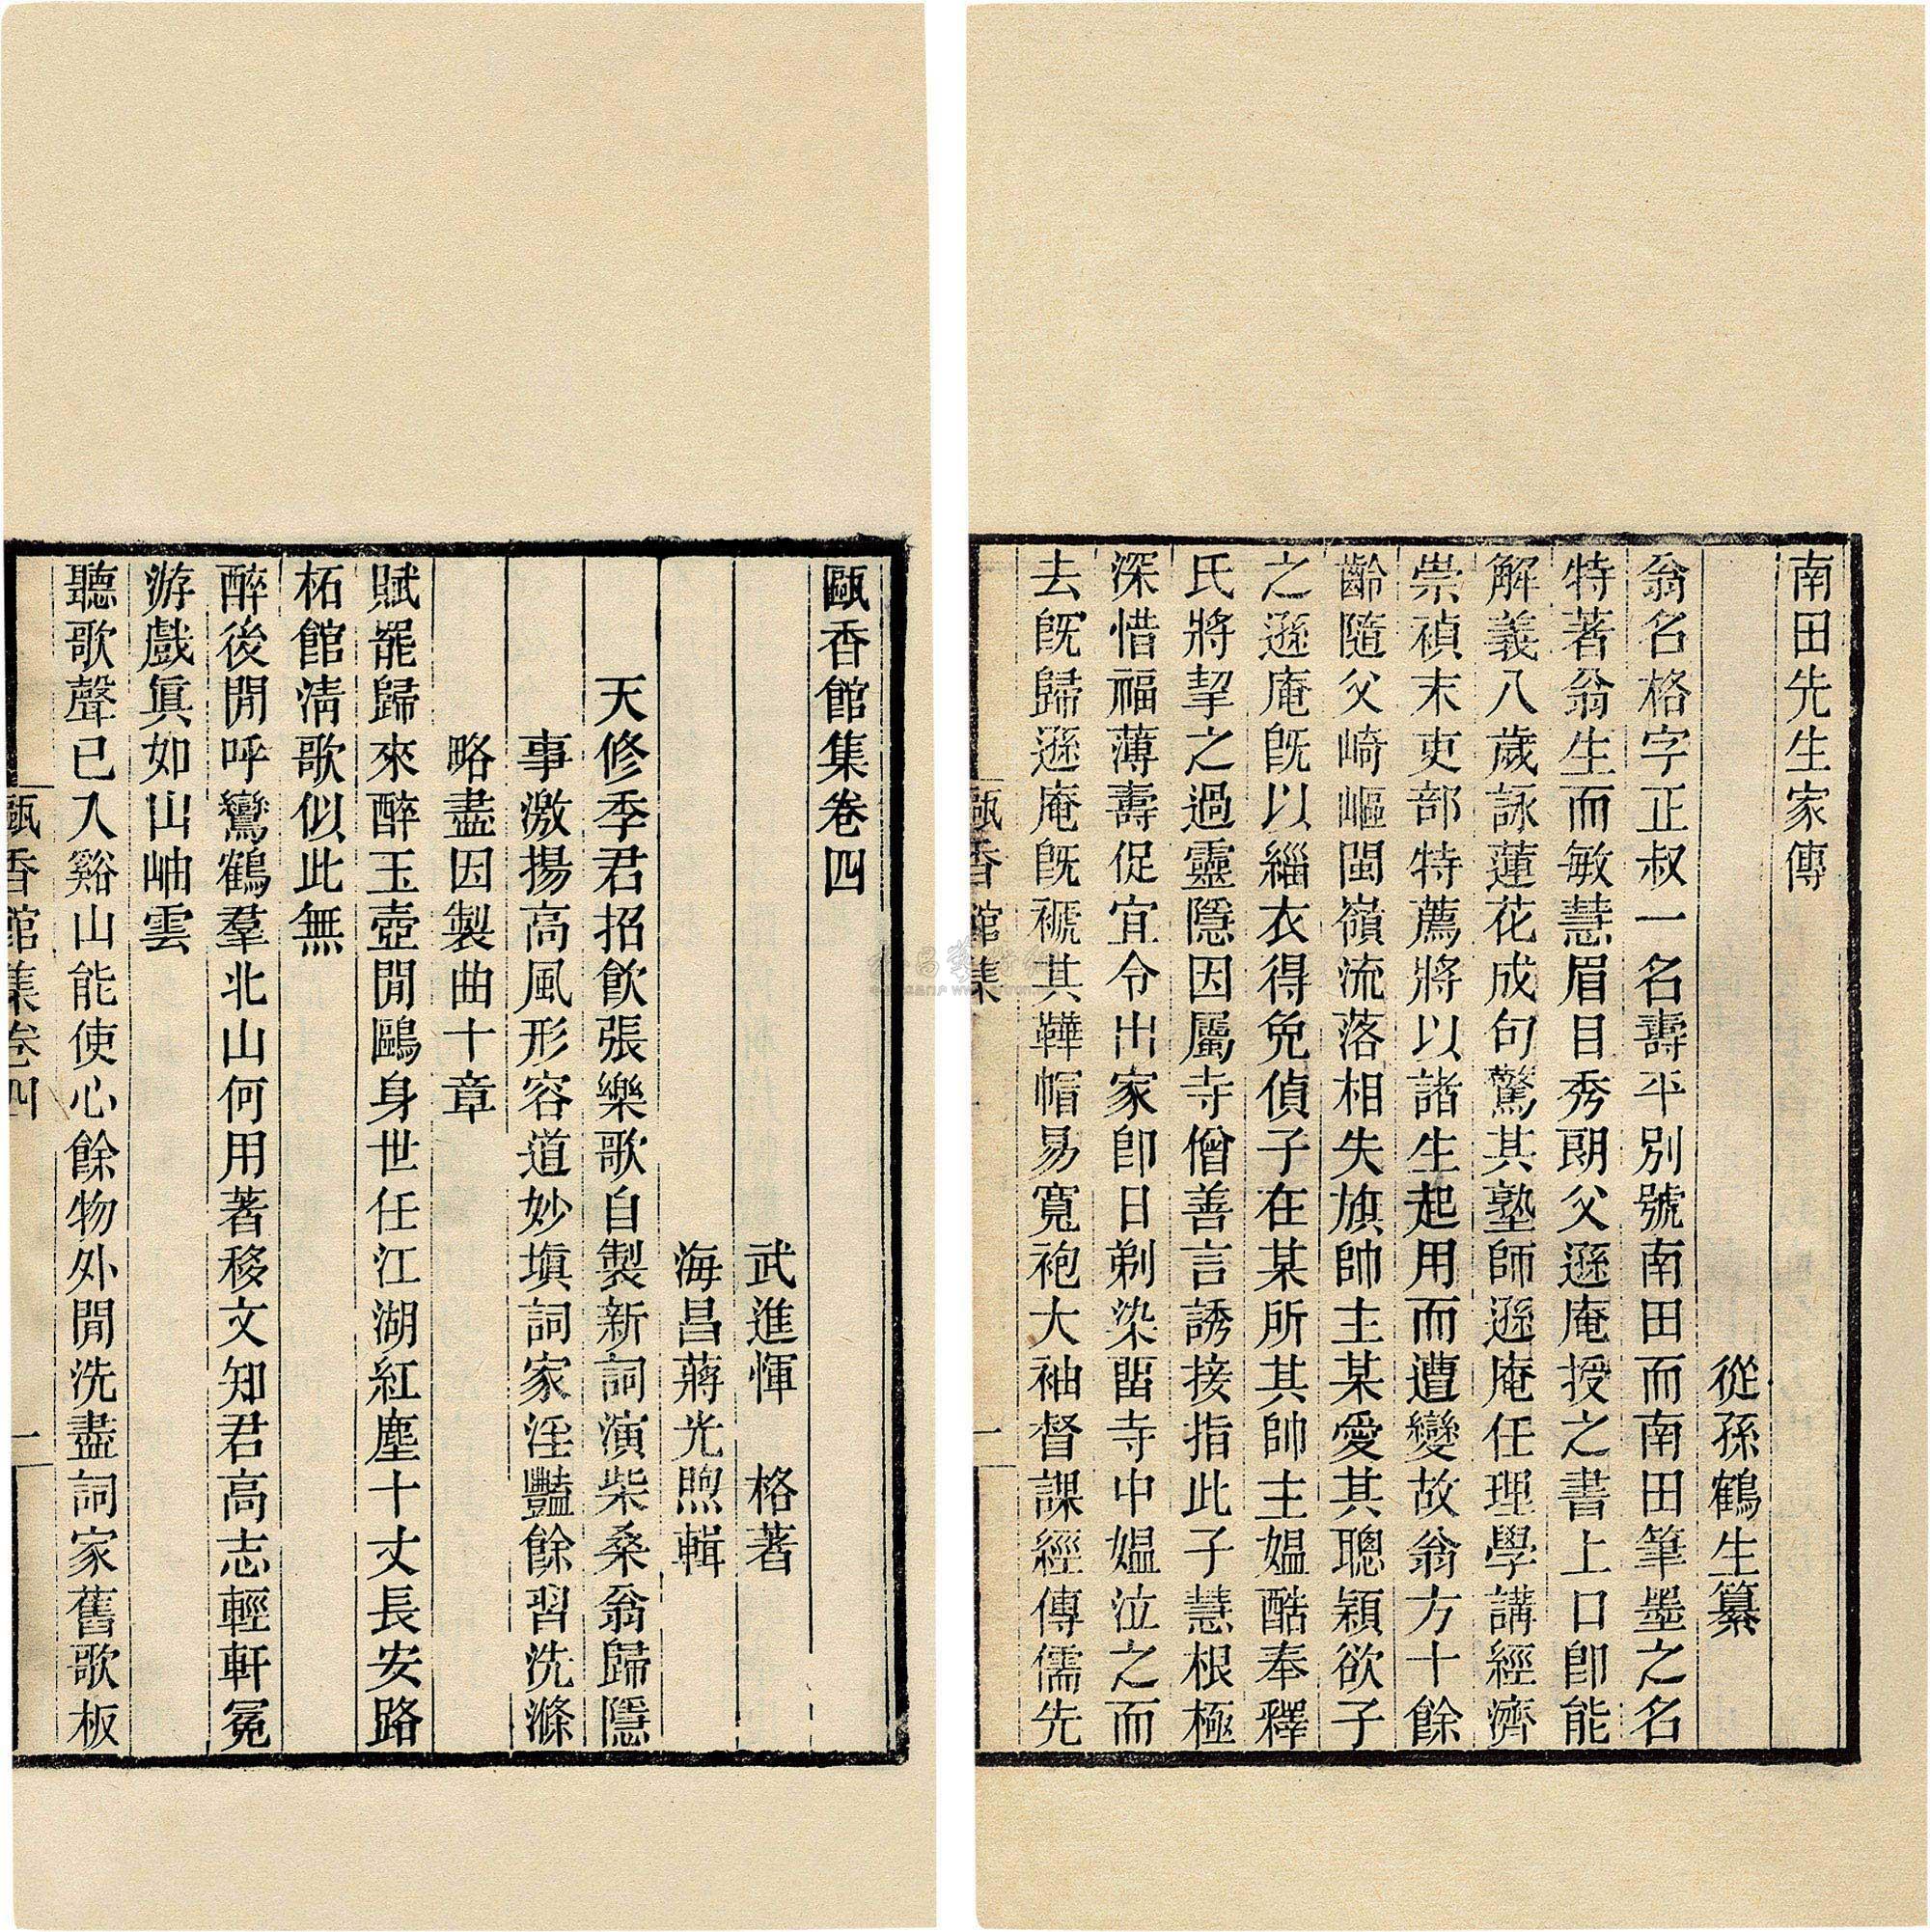 南田先生家傳
從孫鶴生纂
翁名格字正叔一名壽平別號南田而南田筆墨之名
特著翁生而敏慧眉目秀朗父遜庵授之書上口卽能
解義八歲詠蓮花成句驚其塾師遜庵任理學講經濟
崇禎末吏部特薦將以諸生起用而遭變故翁方十餘
齡隨父崎嶇閩嶺流落相失旗帥主某愛其聰穎欲子
之遜庵旣以緇衣得免偵子在某所其帥主媼酷奉釋
氏將挈之過靈隱因屬寺僧善言誘接指此子慧根極
深惜福薄壽促宜令出家卽日剃染畱寺中媼泣之而
去旣歸遜庵旣褫其鞾帽易寬袍大袖督課經傳儒先
甌香館集
一
甌香館集卷四
武進惲　格著
海昌蔣光煦輯
天修季君招飮張樂歌自製新詞演柴桑翁歸隱
事激揚高風形容道妙塡詞家淫豔餘習洗滌
略盡因製曲十章
賦罷歸來醉玉壺閒鷗身世任江湖紅塵十丈長安路
柘館淸歌似此無
醉後閒呼鸞鶴羣北山何用著移文知君高志輕軒冕
游戲眞如山岫雲
聽歌聲已入谿山能使心餘物外閒洗盡詞家舊歌板
甌香館集卷四
一